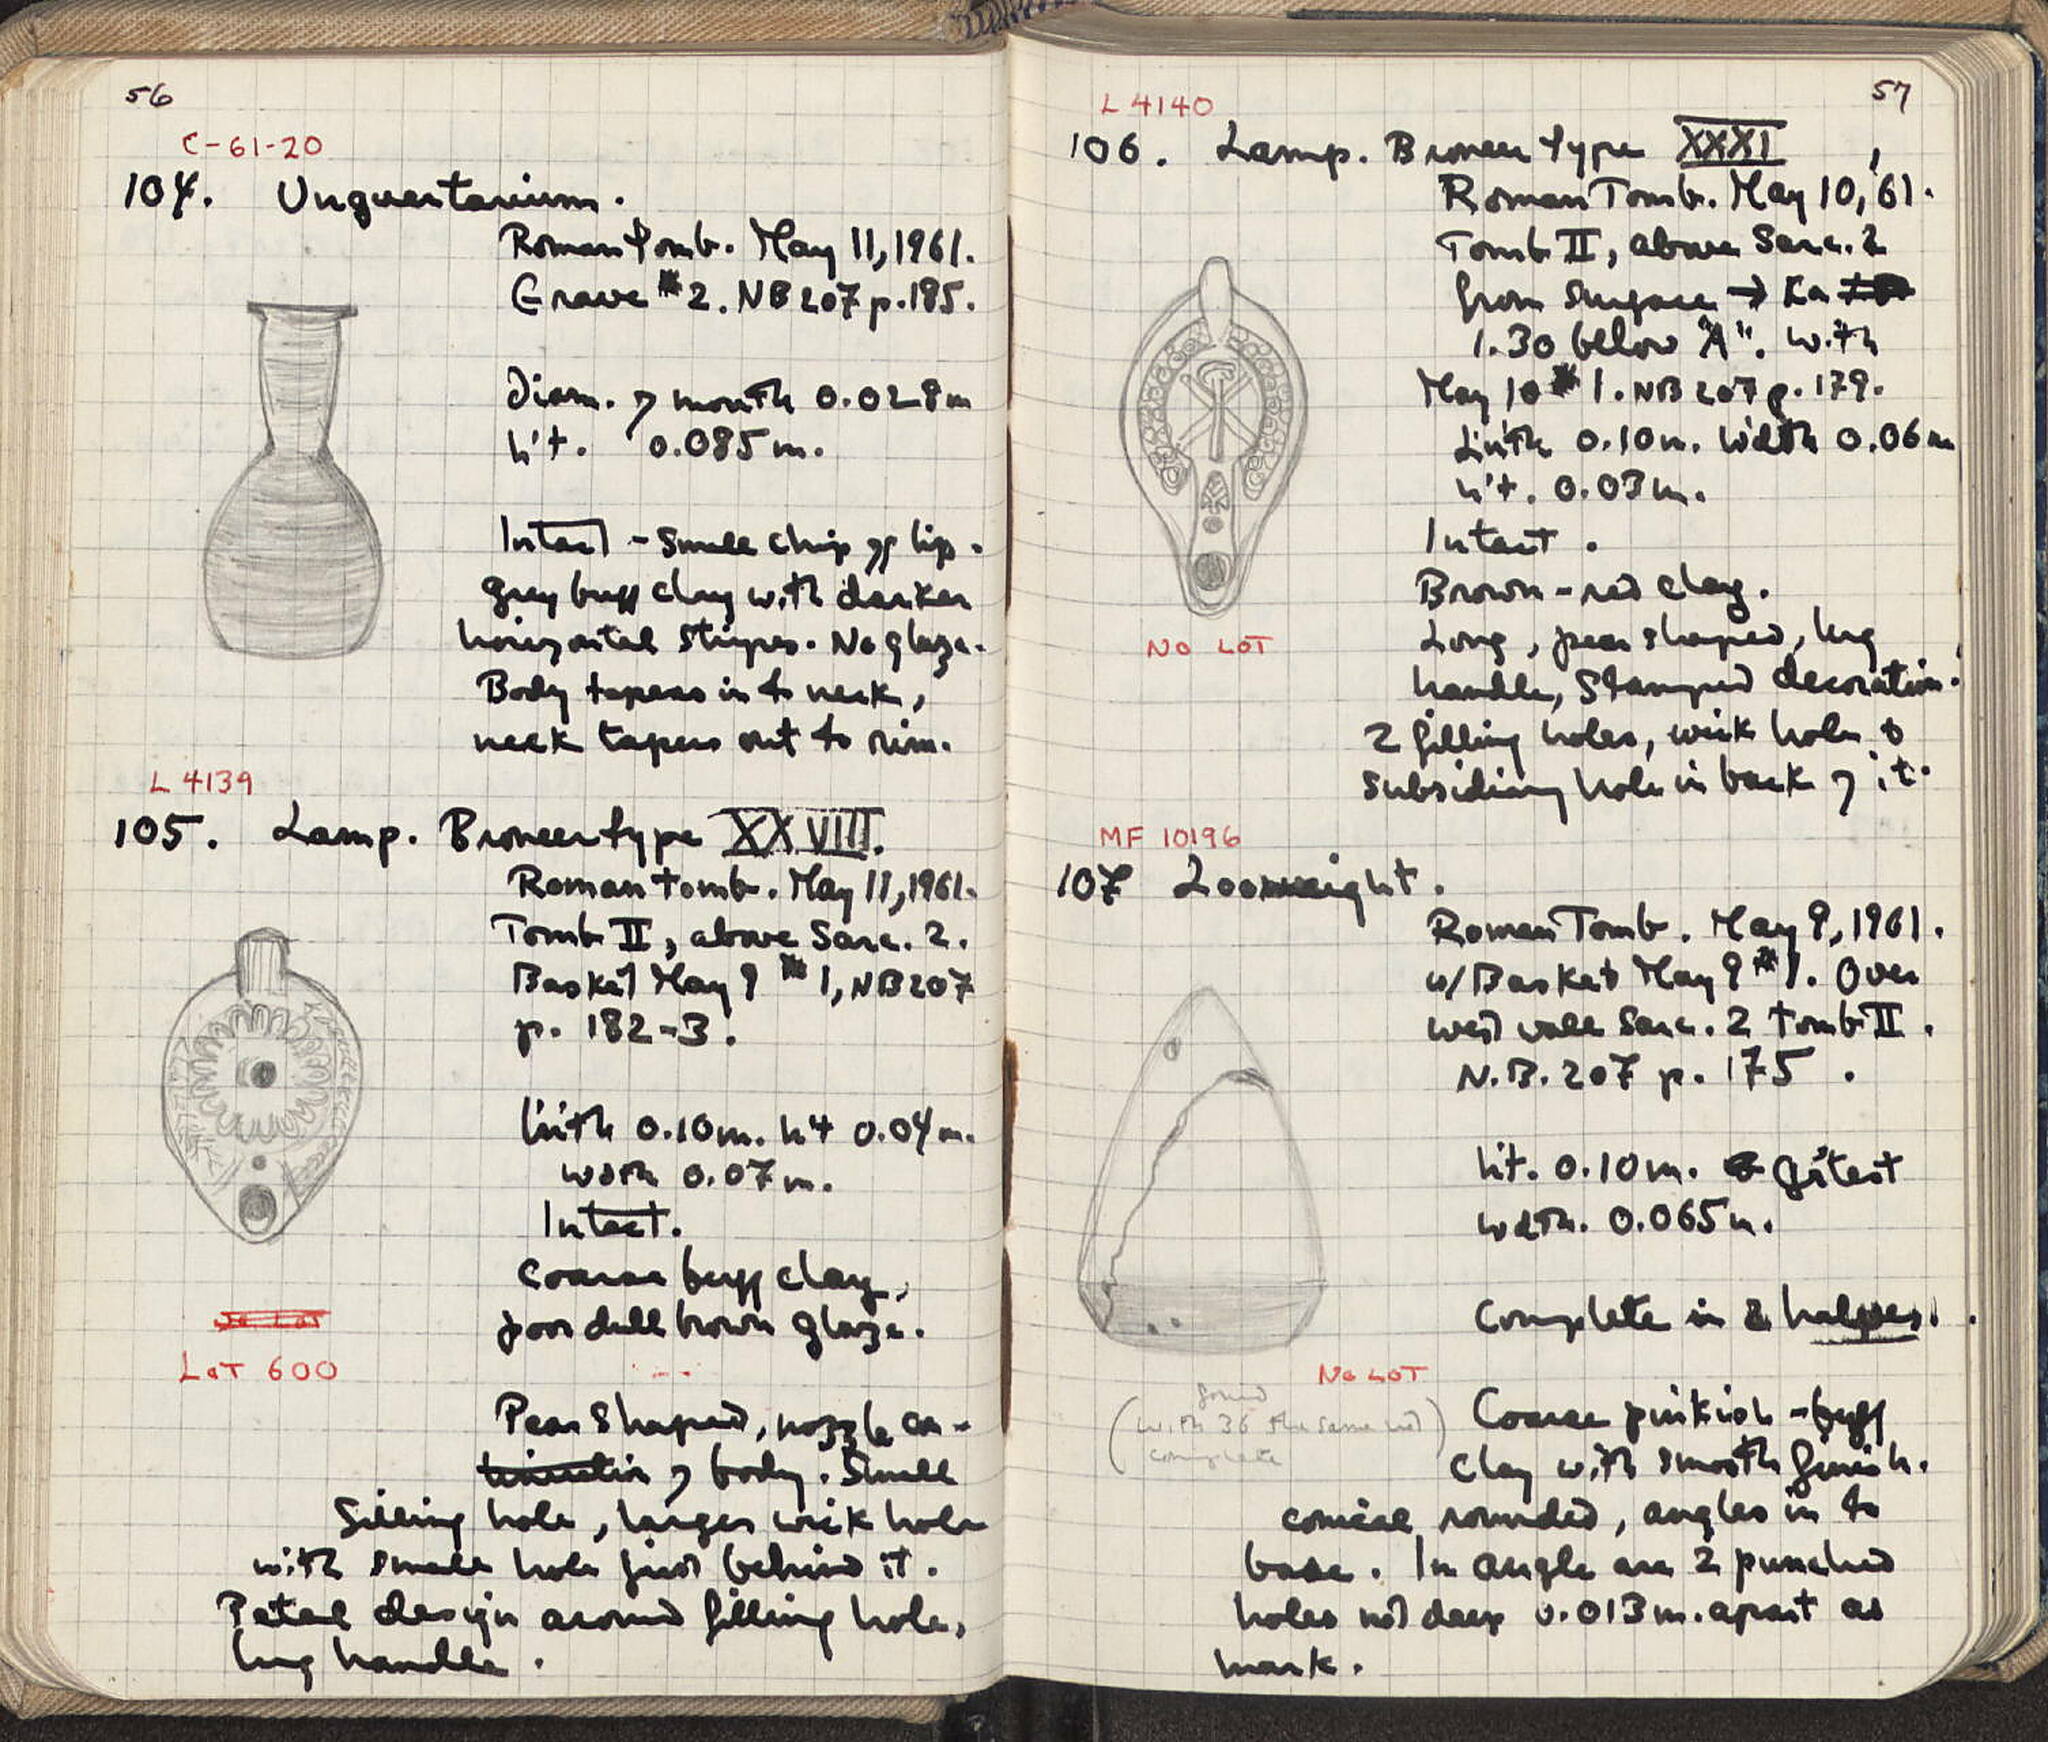 56
C-61-20
104. Unguentarium.
Roman tomb. May 11, 1961.
Grave #2. NB 207 p. 185.
Diam. of mouth 0.028 m
h't. 0.085 m.
Intact - small chip off lip.
Grey buff clay with darker
horizontal stripes. No glaze.
Body tapers in to neck,
neck tapers out to rim.
L 4139
105. Lamp. Broneer type XXVIII.
Roman tomb. May 11, 1961.
Tomb II, above Sarc. 2.
Basket May 9 #1, NB 207
p. 182-3.
l'nth 0.10 m. ht 0.04 m.
wdth 0.07 m.
Intact.
Coarse buff clay,
poor dull brown glaze.
No Lot
LOT 600
Pear shaped, nozzle con-
tinuation of body. Small
filling hole, larger wick hole
with small hole just behind it.
Petal design around filling hole,
lug handle.
57
L 4140
106. Lamp. Broneer type XXXI
Roman Tomb. May 10, '61.
Tomb II, above Sarc. 2
from surface →
1.30 below "A". with
May 10 #1. NB 207 p. 179.
L'nth 0.10 m. Width 0.06 m
h't. 0.03 m.
Intact.
Brown-red clay.
Long, pear shaped, lug
handle, stamped decoration.
2 filling holes, wick hole &
subsidiary hole in back of it.
NO LOT
MF 10196
107 Loomweight.
Roman Tomb. May 9, 1961.
w/Basket May 9 #1. Over
west wall Sarc. 2 tomb II.
N.B. 207 p. 175.
h't. 0.10 m. G'test
wdth. 0.065 m.
Complete in 2 halves.
NO LOT
(found
with 36 the same not
complete)
Coarse pinkish-buff
clay with smooth finish.
conical rounded, angles in to
base. In angle are 2 punched
holes not deep 0.013 m. apart as
mark.